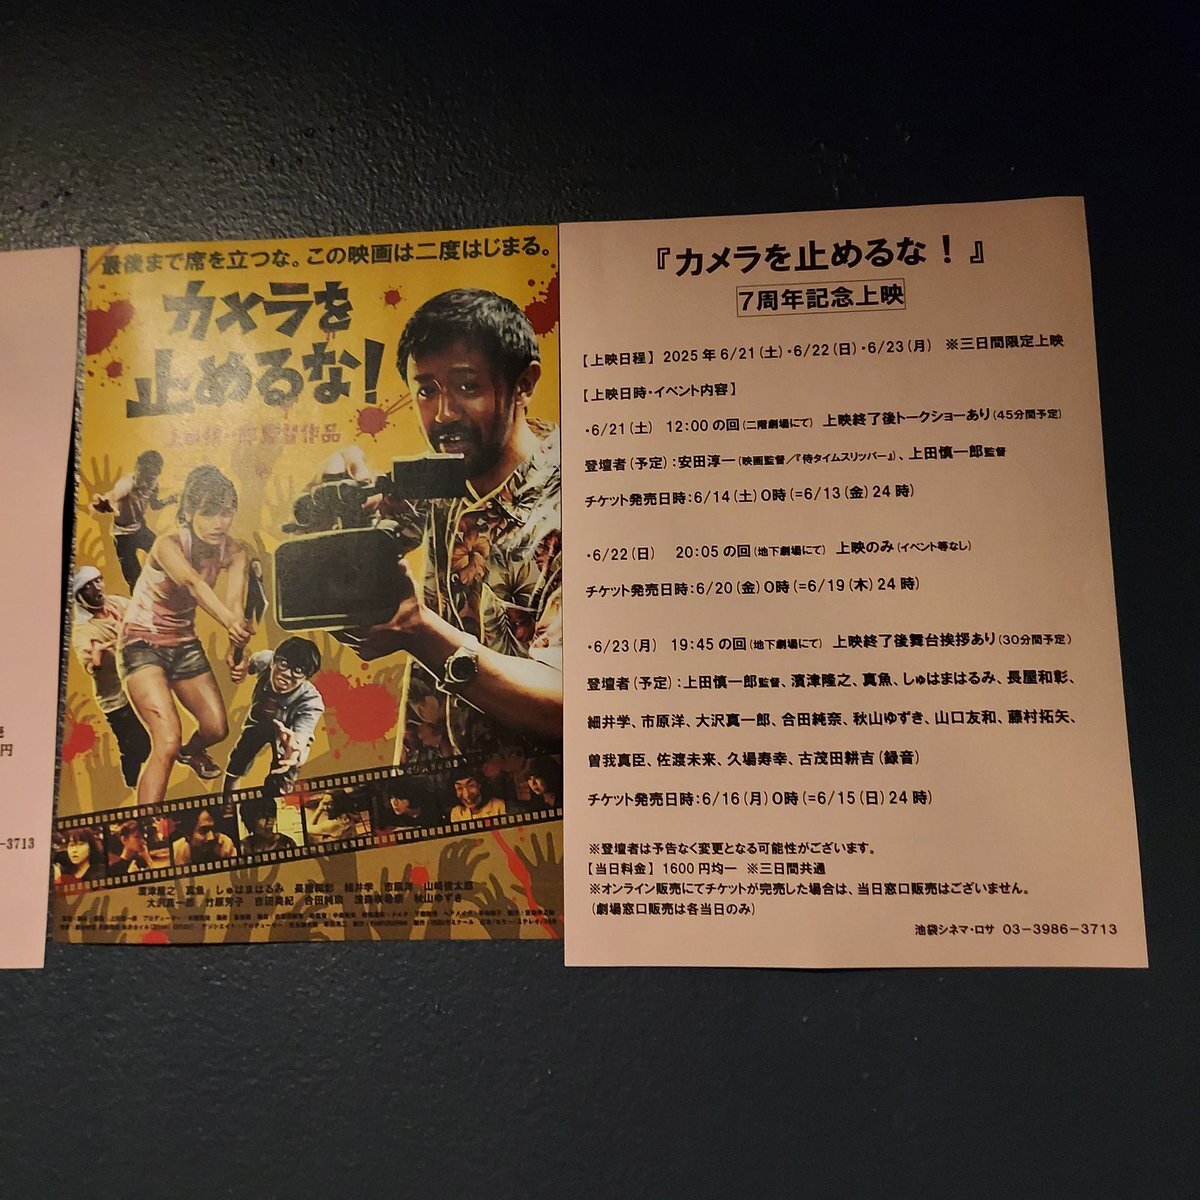 売
円
-3713
最後まで席を立つな。この映画は二度はじまる。
カメラを
止めるな!
上田慎一郎監督作品
濱津隆之 真魚 しゅはまはるみ 長屋和彰 細井学 市原洋 山﨑俊太郎
大沢真一郎 竹原芳子 吉田美紀 合田純奈 浅森咲希奈 秋山ゆずき
『カメラを止めるな!』
7周年記念上映
【上映日程】 2025年6/21(土)・6/22(日)・6/23(月) ※三日間限定上映
【上映日時・イベント内容】
・6/21(土) 12:00の回(二階劇場にて) 上映終了後トークショーあり(45分間予定)
登壇者(予定):安田淳一(映画監督/『侍タイムスリッパー』)、上田慎一郎監督
チケット発売日時:6/14(土)0時(=6/13(金)24時)
・6/22(日) 20:05の回(地下劇場にて) 上映のみ(イベント等なし)
チケット発売日時:6/20(金)0時(=6/19(木)24時)
・6/23(月) 19:45の回(地下劇場にて) 上映終了後舞台挨拶あり(30分間予定)
登壇者(予定):上田慎一郎監督、濱津隆之、真魚、しゅはまはるみ、長屋和彰、
細井学、市原洋、大沢真一郎、合田純奈、秋山ゆずき、山口友和、藤村拓矢、
曽我真臣、佐渡未来、久場寿幸、古茂田耕吉(録音)
チケット発売日時:6/16(月)0時(=6/15(日)24時)
※登壇者は予告なく変更となる可能性がございます。
【当日料金】 1600円均一 ※三日間共通
※オンライン販売にてチケットが完売した場合は、当日窓口販売はございません。
(劇場窓口販売は各当日のみ)
池袋シネマ・ロサ 03-3986-3713